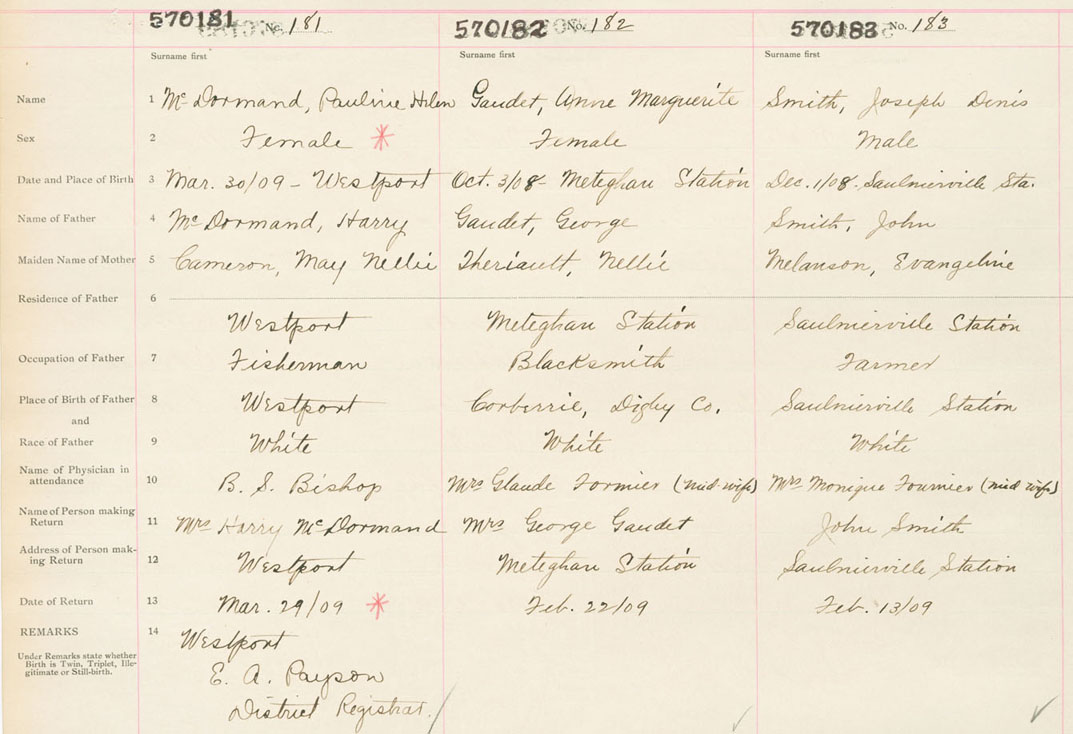 570181 No. 181 570182 No. 182 570183 No. 183
Surname first Surname first Surname first
Name 1 Mc Dormand, Pauline Hilen Gaudet, Anne Marguerite Smith, Joseph Denis
Sex 2 Female * Female Male
Date and Place of Birth 3 Mar. 30/09 - Westport Oct. 3/08 - Meteghan Station Dec. 1/08. Saulnierville Sta.
Name of Father 4 Mc Dormand, Harry Gaudet, George Smith, John
Maiden Name of Mother 5 Cameron, May Nellie Theriault, Nellie Melanson, Evangeline
Residence of Father 6
Westport Meteghan Station Saulnierville Station
Occupation of Father 7 Fisherman Blacksmith Farmer
Place of Birth of Father 8 Westport Corberrie, Digby Co. Saulnierville Station
and
Race of Father 9 White White White
Name of Physician in
attendance 10 B. S. Bishop Mrs Glaude (mid-wife) Mrs Monique Fournier (mid wife)
Name of Person making
Return 11 Mrs Harry McDormand Mrs George Gaudet John Smith
Address of Person mak-
ing Return 12 Westport Meteghan Station Saulnierville Station
Date of Return 13 Mar. 29/09 * Feb. 22/09 Feb. 13/09
REMARKS 14 Westport
Under Remarks state whether
Birth is Twin, Triplet, Ille-
gitimate or Still-birth.
E. A. Payson
District Registrar.